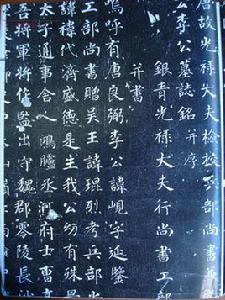 唐故光祿大夫檢校兵部尚書兼
公李公墓誌銘 并序
銀青光祿大夫行尚書工部
并書
嗚呼有唐良弼李公諱峴字延鑒
工部尚書贈吳王諱琨烈考兵部尚
諱禕代濟盛德是生我公幼有殊
太子通事舍人鴻臚丞河府士曹
吾將軍將作監出守魏郡零陵長沙